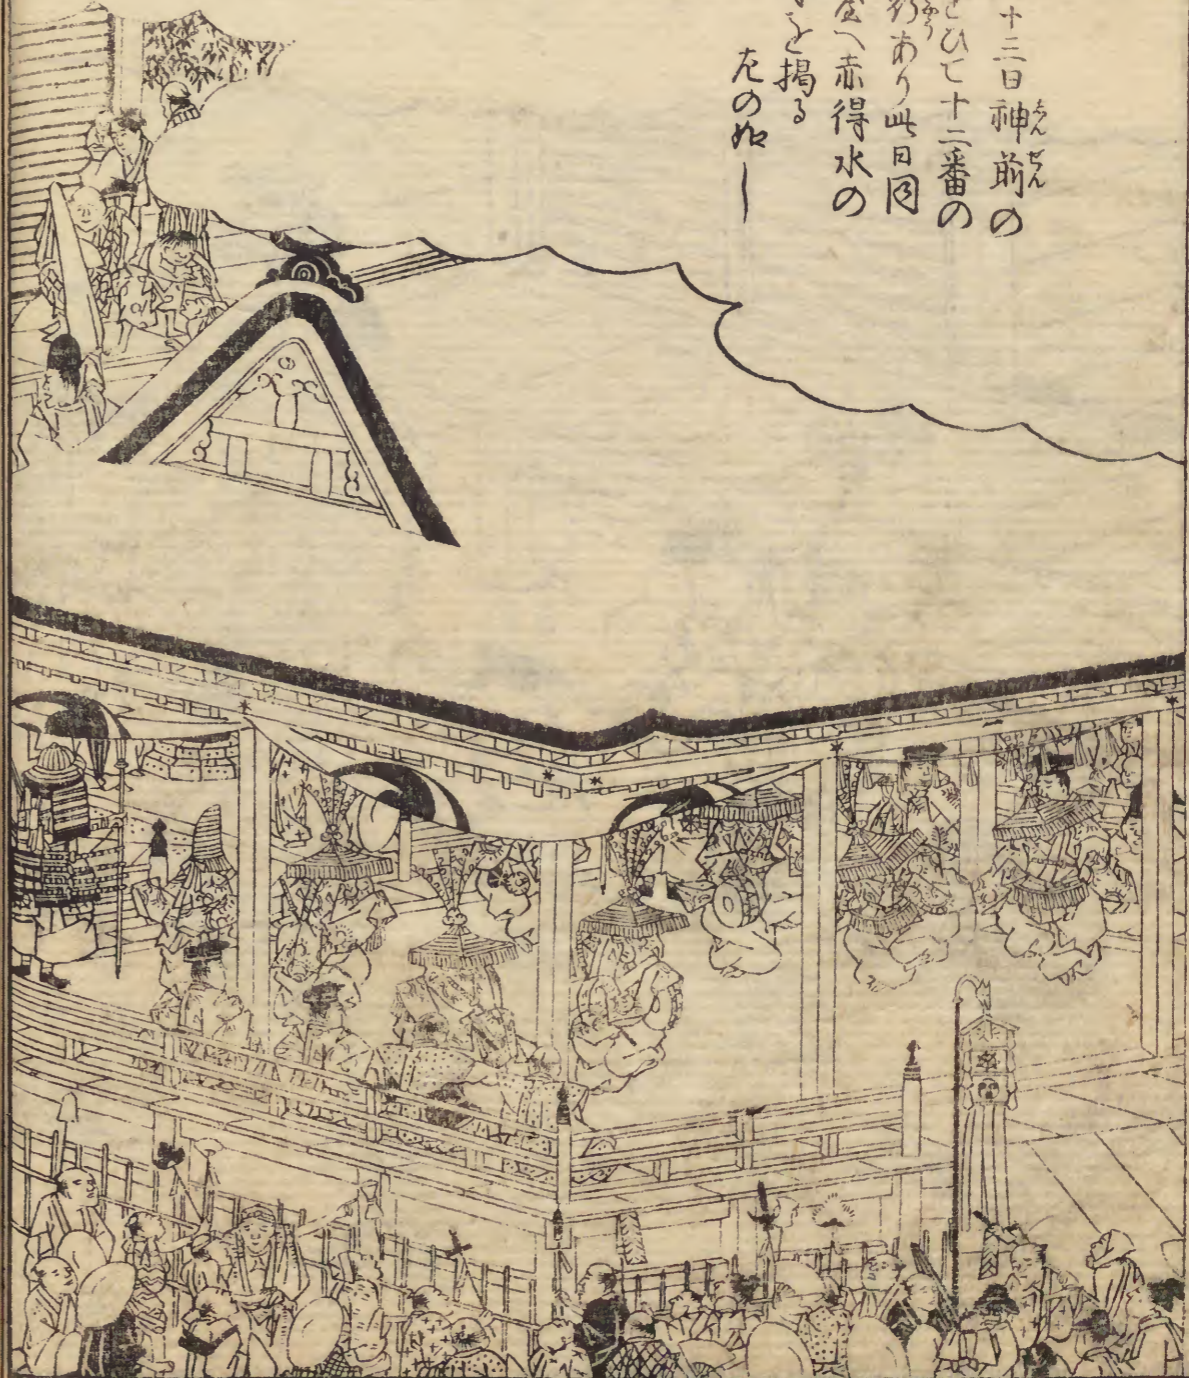 十三日神前の
しんぜん
をひて十二番の
行あり此日同
へ赤得水の
を掲る
左の如し